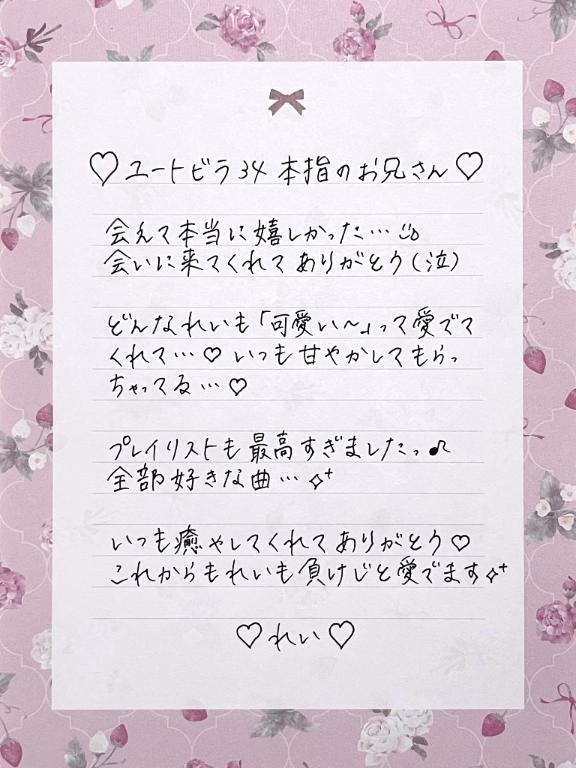 ♡ユートピラ34 本指のお兄さん♡
会えて本当に嬉しかった…☺
会いに来てくれてありがとう(泣)
どんなれいも「可愛い〜」って愛でて
くれて…♡いつも甘やかしてもらっ
ちゃってる…♡
プレイリストも最高すぎましたっ♪
全部好きな曲…✧⁺
いつも癒やしてくれてありがとう♡
これからもれいも負けじと愛でます✧⁺
♡れい♡